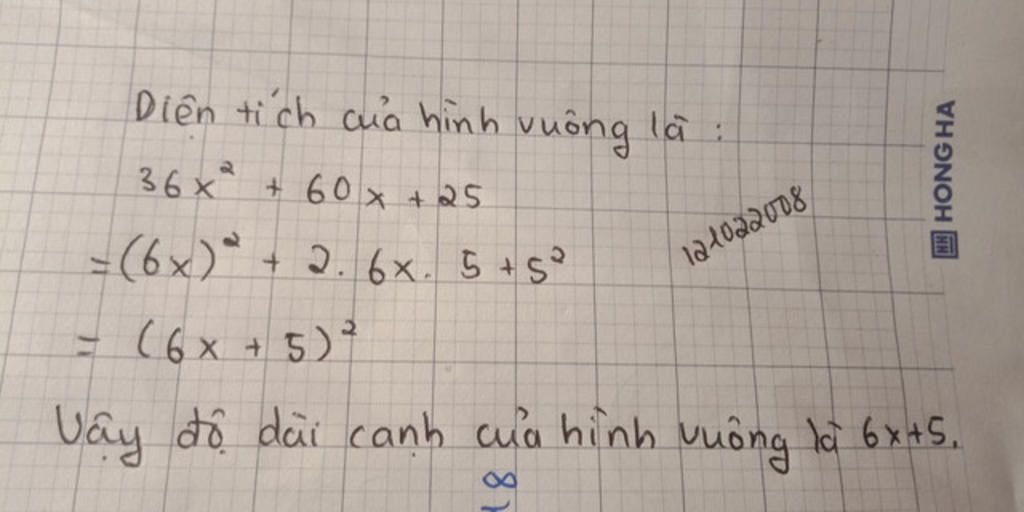 Diện tích của hình vuông là :
36x² + 60x + 25
= (6x)² + 2. 6x. 5 + 5²
= (6x + 5)²
Vậy độ dài cạnh của hình vuông là 6x+5.
121022008
HONG HA